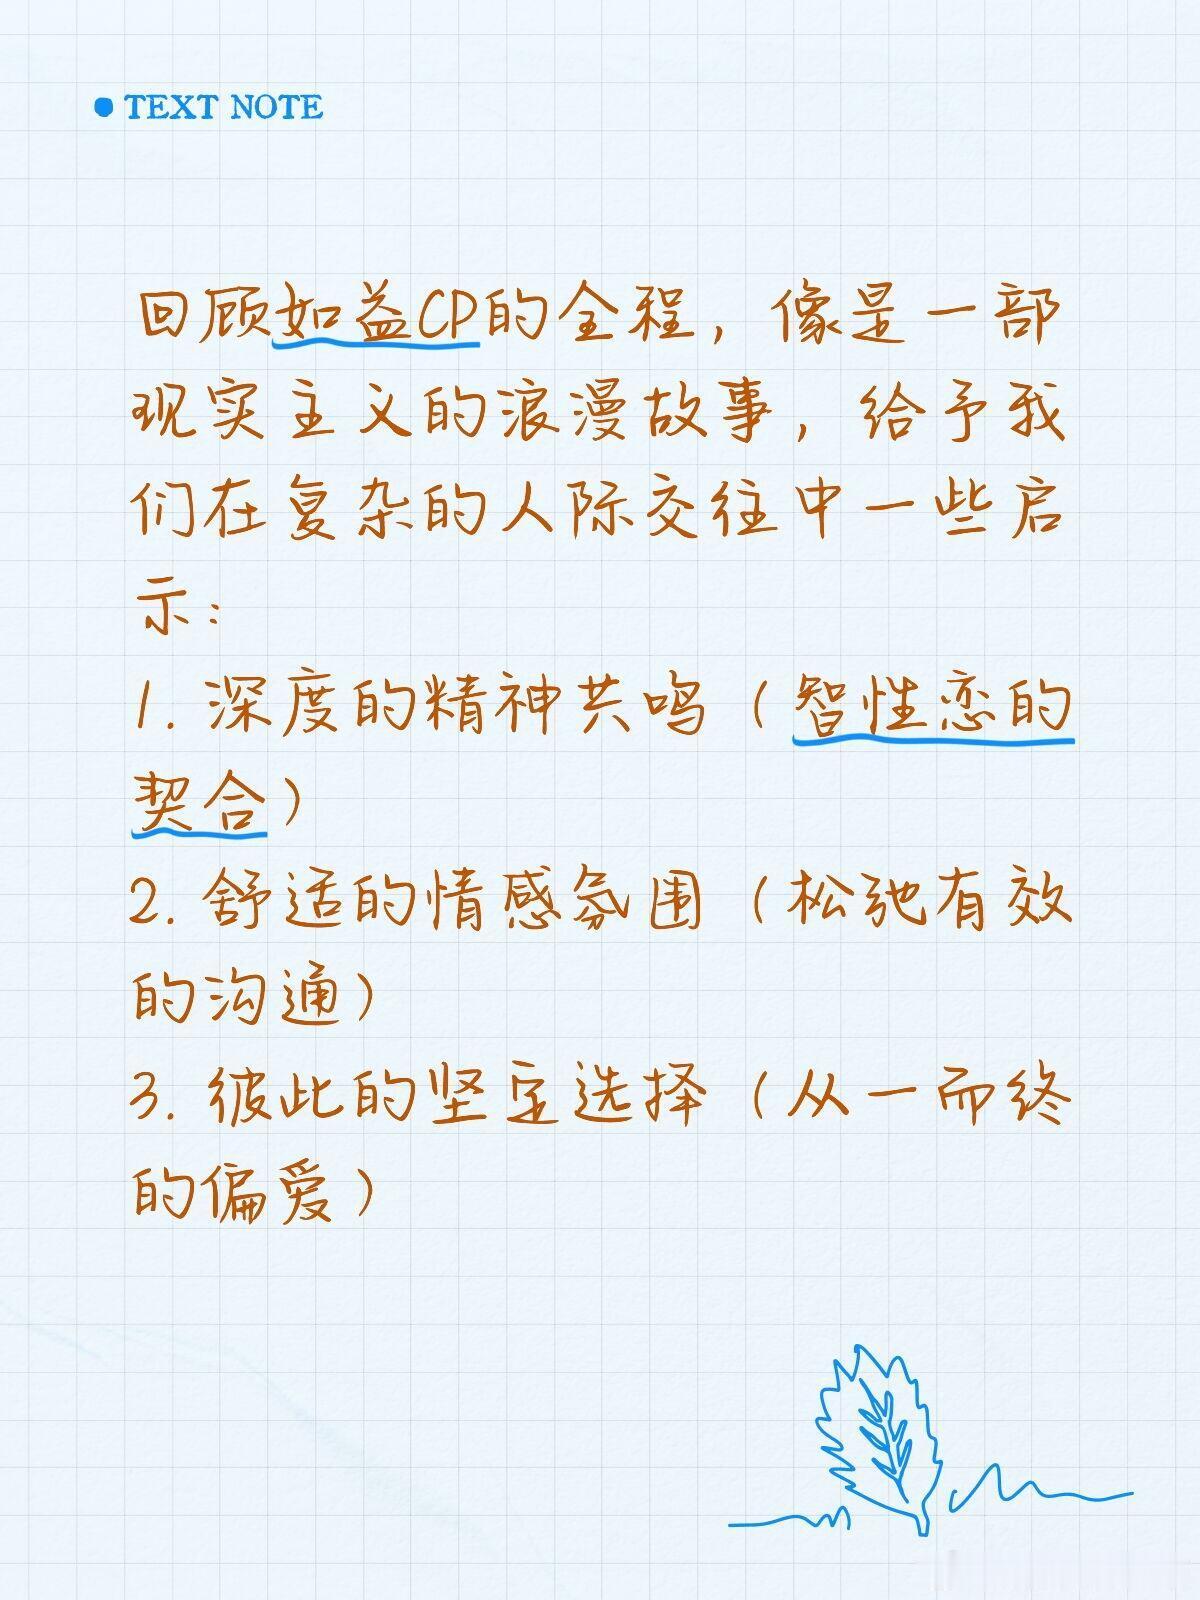 TEXT NOTE
回顾如益CP的全程，像是一部
现实主义的浪漫故事，给予我
们在复杂的人际交往中一些启
示：
1. 深度的精神共鸣（智性恋的
契合）
2. 舒适的情感氛围（松弛有效
的沟通）
3. 彼此的坚定选择（从一而终
的偏爱）